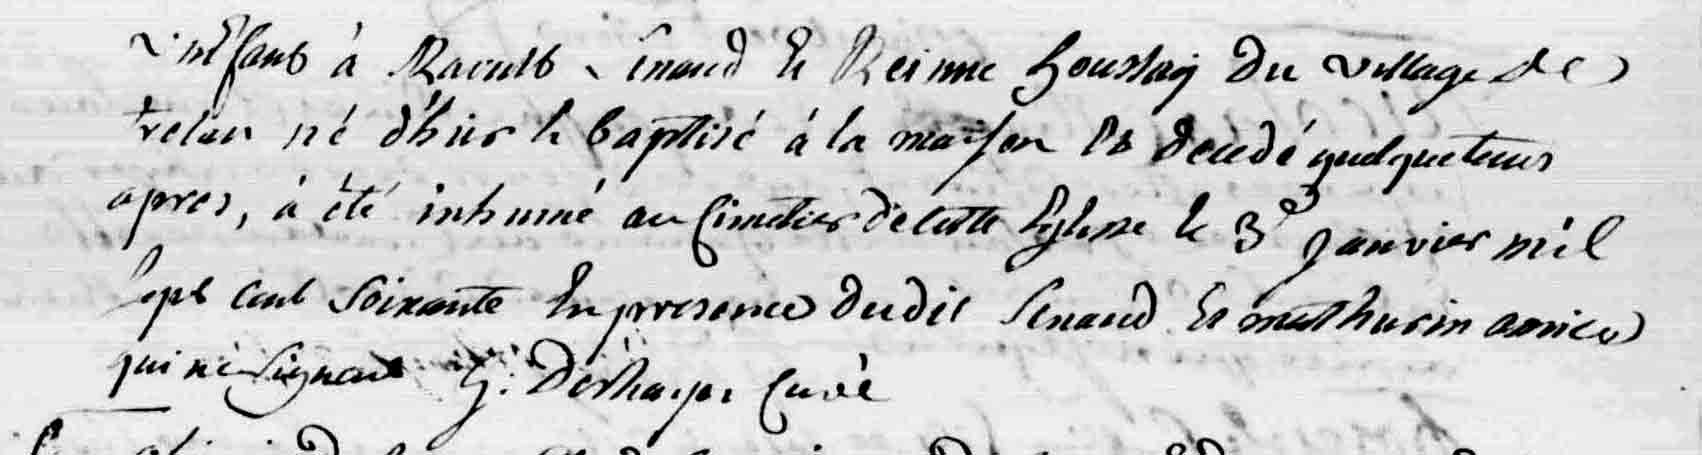 Enfant à Raoult Senaud et Reinne houssay du village de
trelan né d'hier et baptisé à la maison et decedé quelque tems
apres, à été inhumé au Cimetier de cette Eglise le 3e Janvier mil
sept cent soixante En presence dudit Senaud et mathurin
qui ne signent G. Desharpes Curé